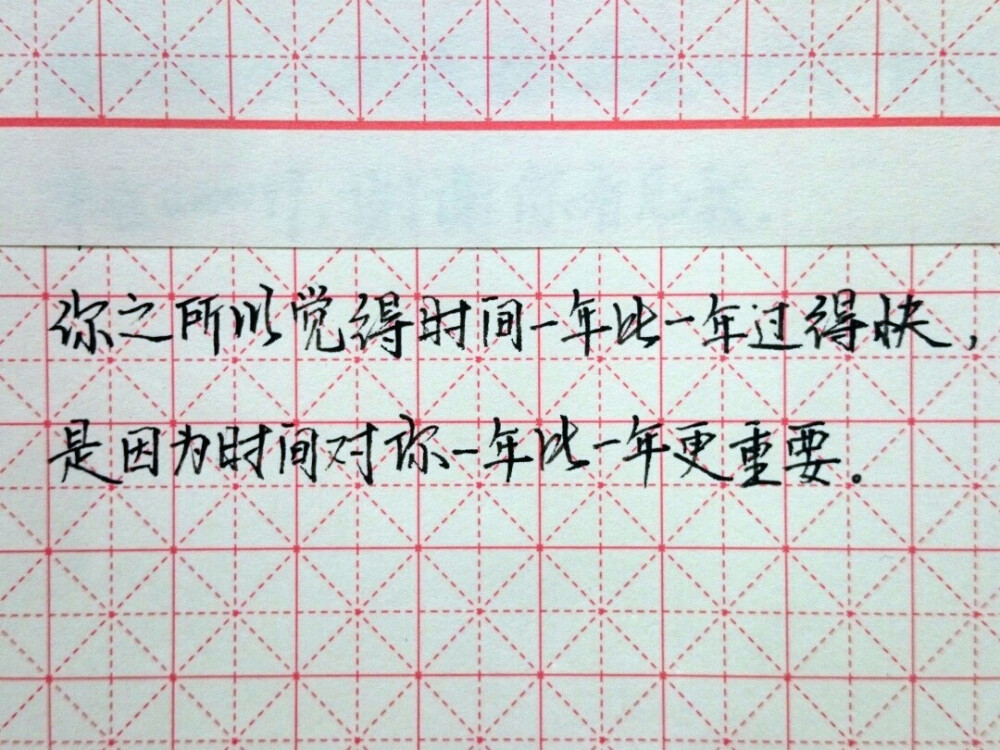 你之所以觉得时间一年比一年过得快，
是因为时间对你一年比一年更重要。